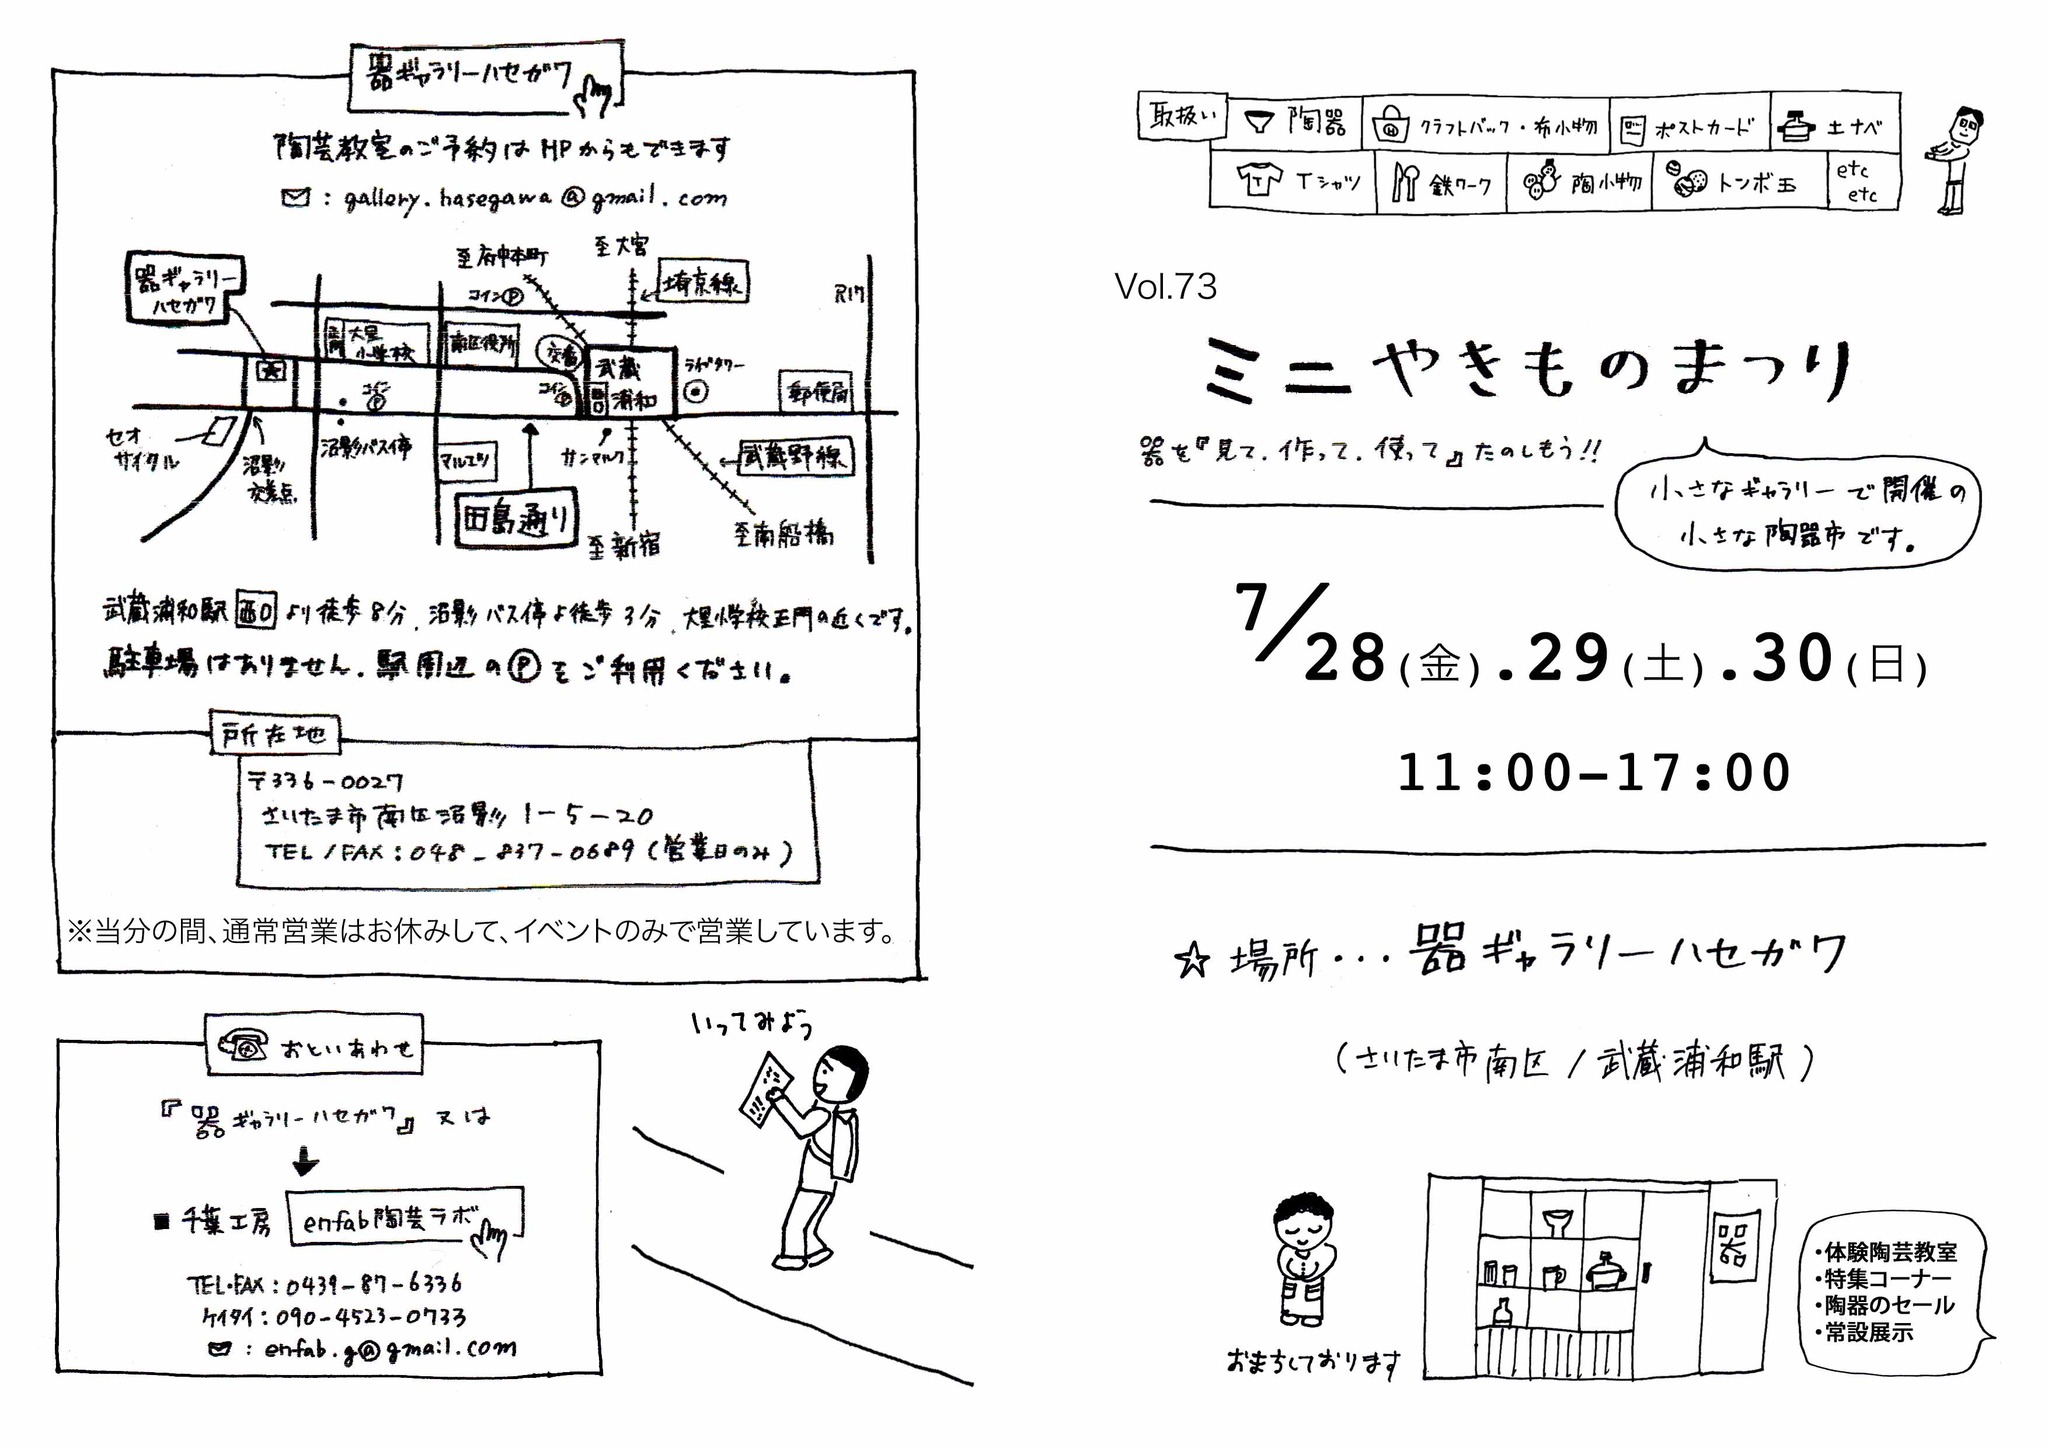 器ギャラリーハセガワ
陶芸教室のご予約はHPからもできます
: gallery.hasegawa@gmail.com
至大宮
至府中本町
埼京線
器ギャラリー
ハセガワ
コインⓅ
R17
正門
大里
小学校
南区役所
交番
武蔵
浦和
西口
ラムザタワー
コイン
Ⓟ
コイン
Ⓟ
郵便局
セオ
サイクル
沼影
交差点
沼影バス停
マルエツ
サンマルク
武蔵野線
田島通り
至新宿
至南船橋
武蔵浦和駅西口より徒歩8分、沼影バス停より徒歩3分、大里小学校正門の近くです。
駐車場はありません。駅周辺のⓅをご利用ください。
所在地
〒336-0027
さいたま市南区沼影1-5-20
TEL/FAX:048-837-0689(営業日のみ)
※当分の間、通常営業はお休みして、イベントのみで営業しています。
おといあわせ
『器ギャラリーハセガワ』又は
■千葉工房 enfab陶芸ラボ
TEL・FAX:0439-87-6336
ケイタイ:090-4523-0733
: enfab.g@gmail.com
いってみよう
取扱い 陶器 クラフトバック・布小物 ポストカード 土ナベ
Tシャツ 鉄ワーク 陶小物 トンボ玉 etc
etc
Vol.73
ミニやきものまつり
器を『見て.作って.使って』たのしもう!!
小さなギャラリーで開催の
小さな陶器市です。
7/28(金).29(土).30(日)
11:00-17:00
☆場所・・・器ギャラリーハセガワ
(さいたま市南区/武蔵浦和駅)
器
おまちしております
・体験陶芸教室
・特集コーナー
・陶器のセール
・常設展示